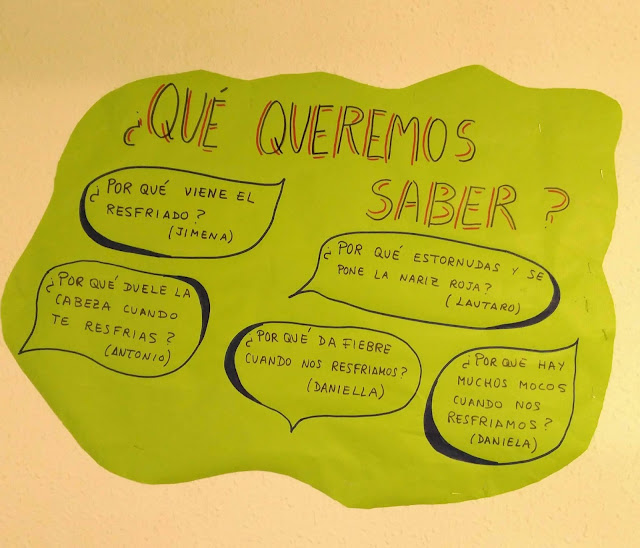 ¿QUÉ QUEREMOS
SABER?
¿POR QUÉ VIENE EL
RESFRIADO?
(JIMENA)
¿POR QUÉ ESTORNUDAS Y SE
PONE LA NARIZ ROJA?
(LAUTARO)
¿POR QUÉ DUELE LA
CABEZA CUANDO
TE RESFRIAS?
(ANTONIO)
¿POR QUÉ DA FIEBRE
CUANDO NOS RESFRIAMOS?
(DANIELLA)
¿POR QUÉ HAY
MUCHOS MOCOS
CUANDO NOS
RESFRIAMOS?
(DANIELA)